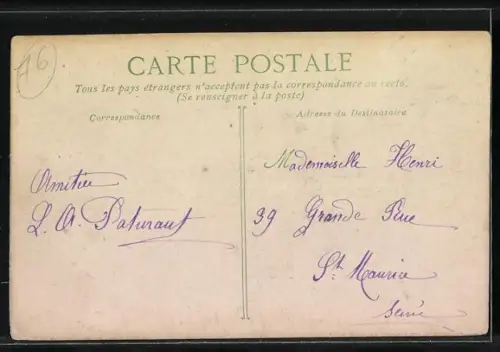 76
CARTE POSTALE
Tous les pays étrangers n'acceptent pas la correspondance au recto.
(Se renseigner à la poste)
Correspondance
Adresse du Destinataire
Amitiés
L. A. Paturaut
Mademoiselle Henri
39 Grande Rue
St Maurice
Seine